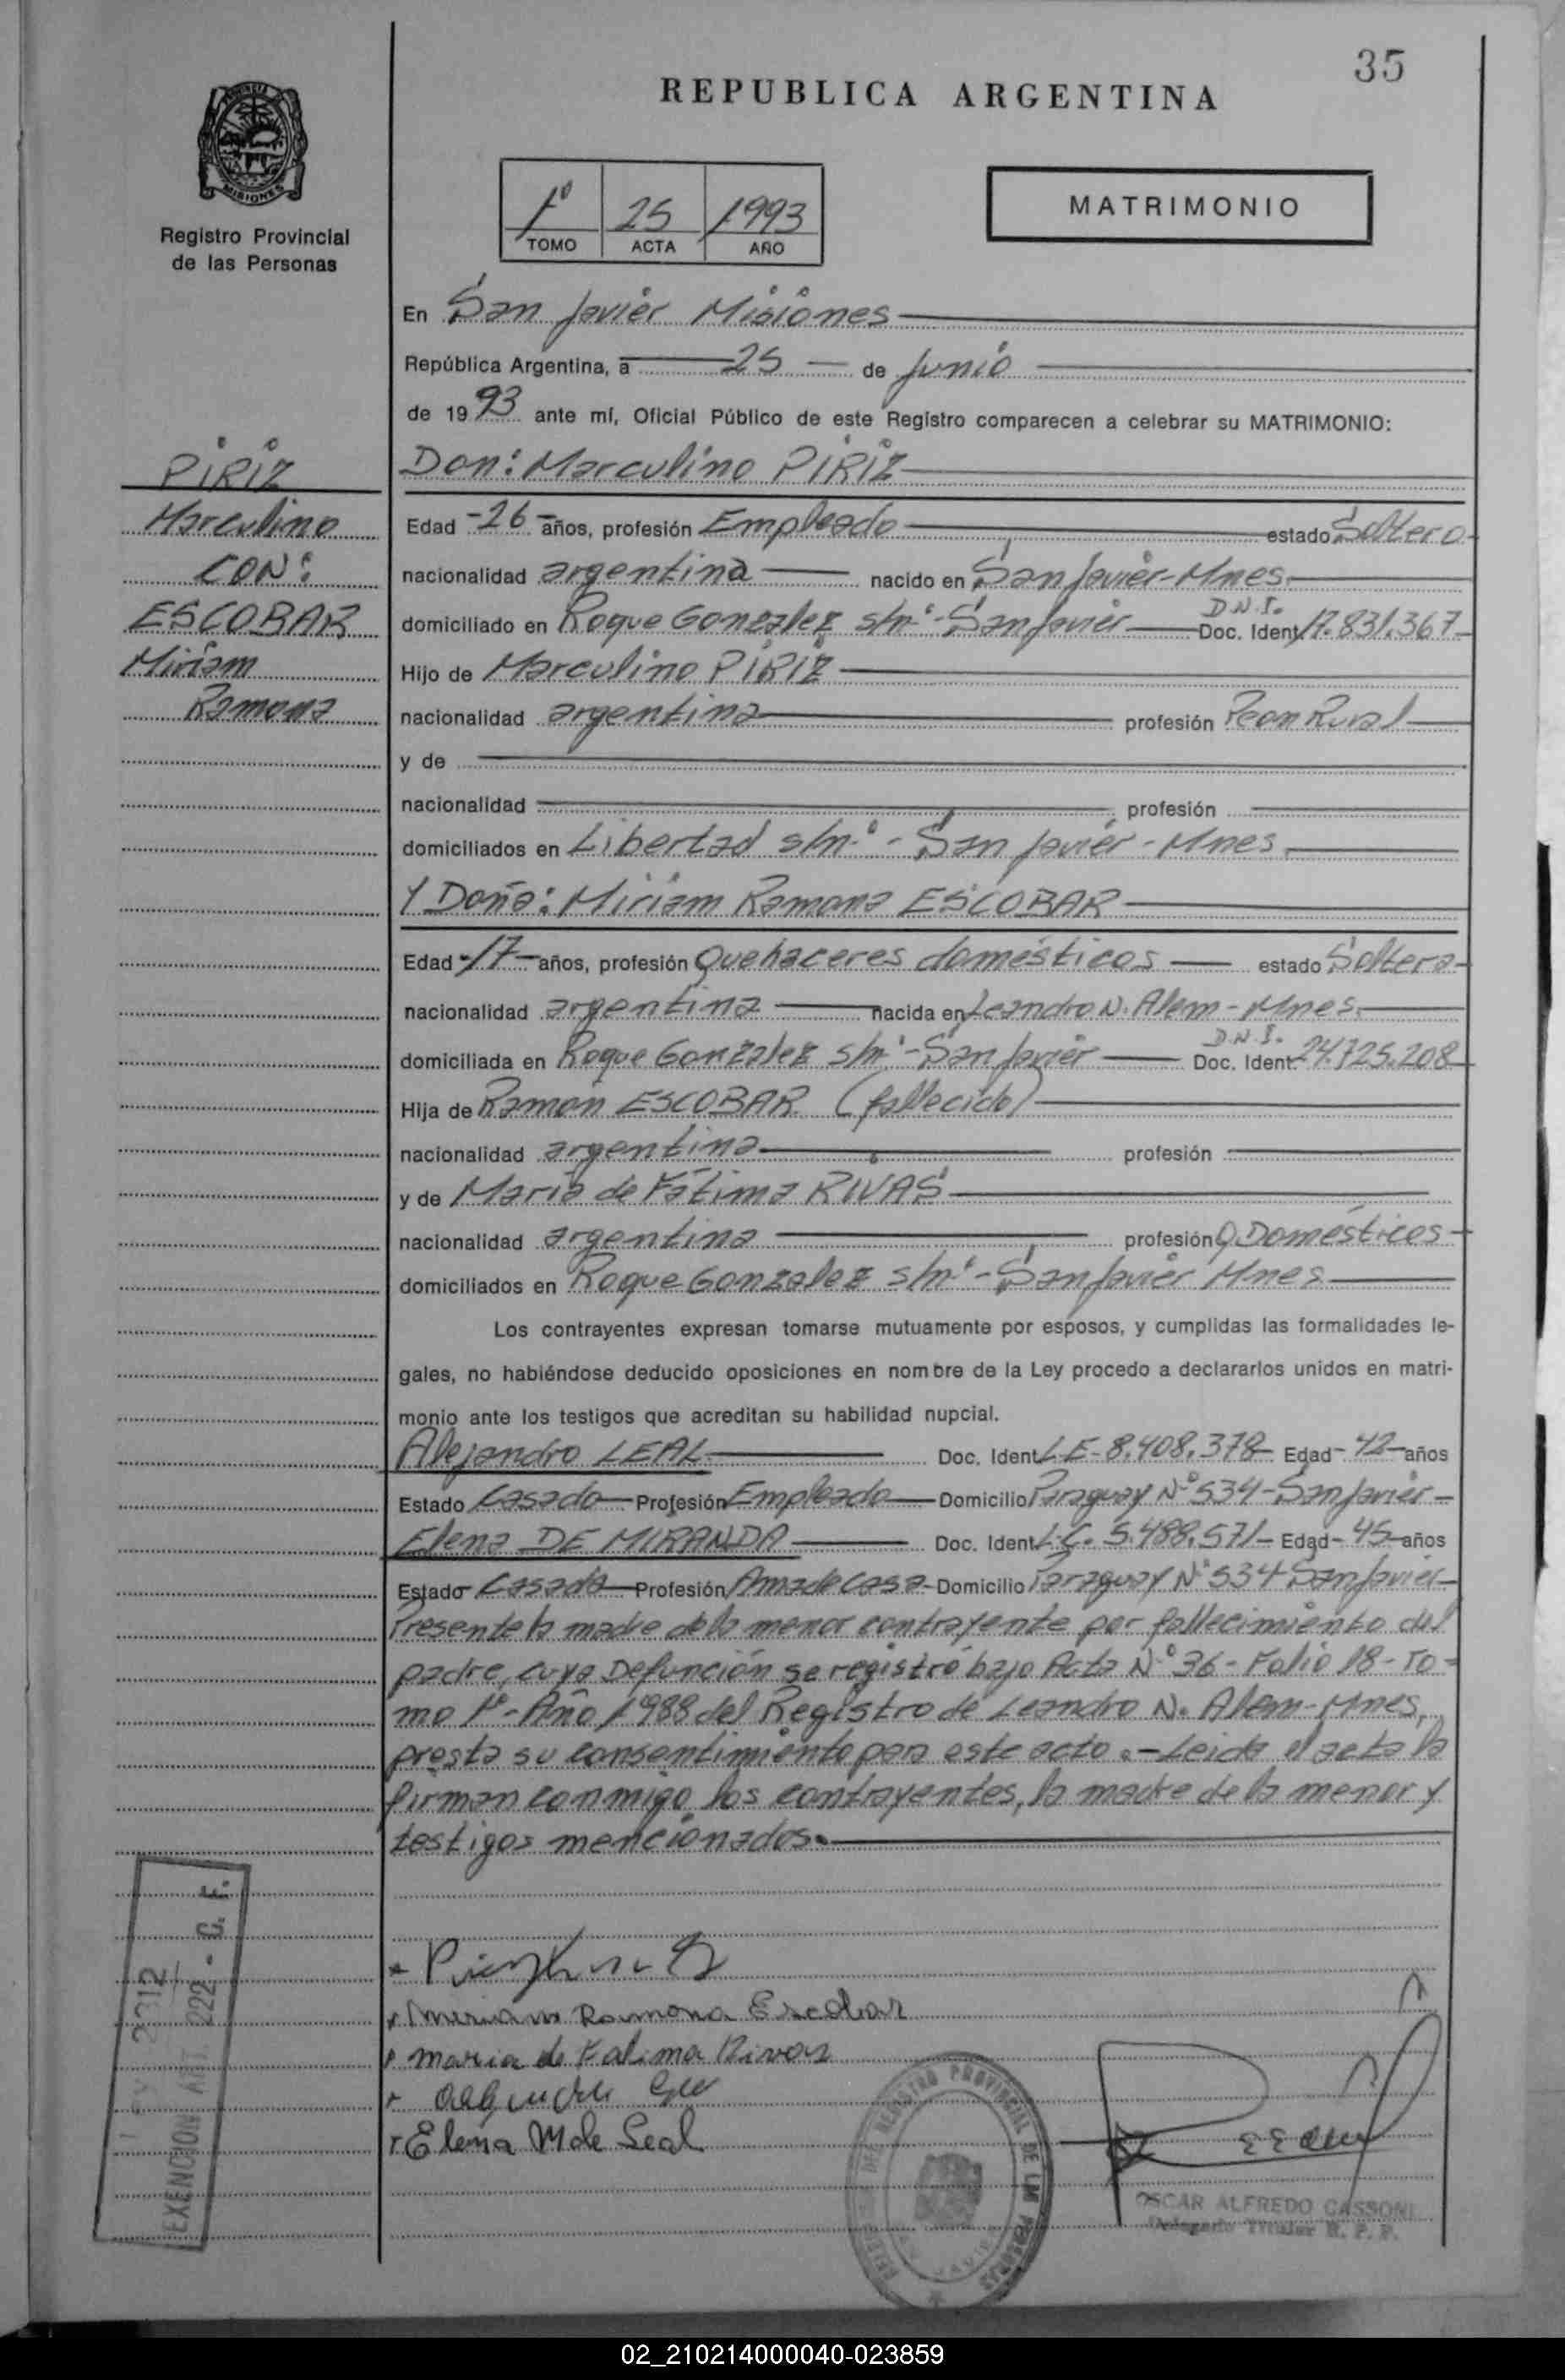 35
REPUBLICA ARGENTINA
PROVINCIA DE
MISIONES
Registro Provincial
de las Personas
1º 25 1993
TOMO ACTA AÑO
MATRIMONIO
En San Javier Misiones
República Argentina, a 25 de Junio
de 1993 ante mí, Oficial Público de este Registro comparecen a celebrar su MATRIMONIO:
PIRIZ
Marculino
CON:
ESCOBAR
Miriam
Ramona
Don: Marculino PIRIZ
Edad -26- años, profesión Empleado estado Soltero
nacionalidad argentina nacido en San Javier-Mnes.
domiciliado en Roque Gonzalez s/nº-San Javier Doc. Ident. D.N.I. 17.831.367
Hijo de Marculino PIRIZ
nacionalidad argentina profesión Peon Rural
y de
nacionalidad profesión
domiciliados en Libertad s/nº - San Javier - Mnes.
Y Doña: Miriam Ramona ESCOBAR
Edad -17- años, profesión Quehaceres domésticos estado Soltera
nacionalidad argentina nacida en Leandro N. Alem - Mnes.
domiciliada en Roque Gonzalez s/nº-San Javier Doc. Ident. D.N.I. 24.725.208
Hija de Ramón ESCOBAR (fallecido)
nacionalidad argentina profesión
y de María de Fátima RIVAS
nacionalidad argentina profesión Q. Domésticos
domiciliados en Roque Gonzalez s/nº - San Javier Mnes.
Los contrayentes expresan tomarse mutuamente por esposos, y cumplidas las formalidades le-
gales, no habiéndose deducido oposiciones en nombre de la Ley procedo a declararlos unidos en matri-
monio ante los testigos que acreditan su habilidad nupcial.
Alejandro LEAL Doc. Ident. L.E-8.408.378 Edad-42-años
Estado Casado Profesión Empleado Domicilio Paraguay Nº 534-San Javier-
Elena DE MIRANDA Doc. Ident. L.C. 5.488.571- Edad-45-años
Estado Casada Profesión Ama de casa-Domicilio Paraguay Nº 534 San Javier-
Presente la madre de la menor contrayente por fallecimiento del
padre, cuya Defunción se registró bajo Acta Nº 36 - Folio 18 - To-
mo 1º - Año 1988 del Registro de Leandro N. Alem-Mnes,
presta su consentimiento para este acto.-Leida el acta la
firman conmigo los contrayentes, la madre de la menor y
testigos mencionados.
Miriam Ramona Escobar
maria de Fatima Rivas
Elena M de Leal
EXENCION ART. 222 - C. F.
REGISTRO PROVINCIAL DE LAS PERSONAS
OSCAR ALFREDO CASSONI
Delegado Titular R. P. P.
02_210214000040-023859